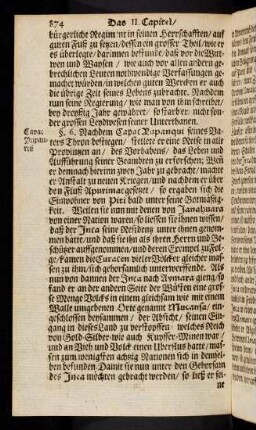 874 Das II. Capitel/
bürgerliche Regiment in seinen Herrschafften/ auf
guten Fuß zu setzen/ dessen ein grosser Theil/ wie er
es überlegte/ darinnen befunde/ daß vor die Witt-
wen und Waysen/ wie auch vor allen andern ge-
brechlichen Leuten nothwendige Verfassungen ge-
machet würden/ in welchen guten Wercken er auch
die übrige Zeit seines Lebens zubrachte. Nachdem
nun seine Regierung/ wie man von ihm schreibet/
bey dreyßig Jahr gewähret/ so starb er/ nicht son-
der grossen Leydwesen seiner Unterthanen.
Capac
§. 6. Nachdem Capac Yupanqui seines Va-
ters Thron bestiegen/ stellte er eine Reise in alle
Provintzien an/ des Vorhabens/ das Leben und
Aufführung seiner Beambten zu erforschen; Wie
er demnach hierinn zwey Jahr zugebracht/ machte
er Anstalt zu neuen Kriegen/ und nachdem er über
den Fluß Apurimac gesetzet/ so ergaben sich die
Einwohner von Piti bald unter seine Botmäßig-
keit. Weilen sie nun mit denen von Janahuara
von einer Nation waren/ so liessen sie ihnen wissen/
daß der Inca seine Residenz unter ihnen genom-
men hätte/ und daß sie ihn als ihren Herrn und Be-
schützer angenommen/ und deren Exempel zu Fol-
ge/ kamen die Curacen vieler Völcker gleicher mas-
sen zu ihm/ sich gehorsamlich unterwerffende. Als
nun von dannen der Inca nach Aymara gieng/ so
fand er an der andern Seite der Wüsten eine gros-
se Menge Volcks in einem gleichsam wie mit einem
Walle umgebenen Orte genannt Mucansa/ ein-
geschlossen beysammen/ der Absicht/ seinen Ein-
gang in dieses Land zu verstopffen/ welches Reich
von Gold- Silber- wie auch Kupffer-Minen war/
und an Vieh und Volck einen Uberfluß hatte/ mas-
sen zum wenigsten achzig Nationen sich in demsel-
ben befunden. Damit sie nun unter den Gehorsam
des Inca möchten gebracht werden/ so ließ er sei-
ne